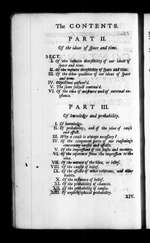 The CONTENTS.
PART II.
Of the ideas of space and time.
SECT.
I. Of the infinite divisibility of our ideas of space and time.
II. Of the infinite divisibility of space and time.
III. Of the other qualities of our ideas of space and time.
IV. Objections answer'd.
V. The same subject continu'd.
VI. Of the idea of existence and of external existence.
PART III.
Of knowledge and probability.
I. Of knowledge.
II. Of probability; and of the idea of cause and effect.
III. Why a cause is always necessary?
IV. Of the component parts of our reasonings concerning causes and effects.
V. Of the impressions of the senses and memory.
VI. Of the inference from the impression to the idea.
VII. Of the nature of the idea, or belief.
VIII. Of the causes of belief.
IX. Of the effects of other relations, and other habits.
X. Of the influence of belief.
XI. Of the probability of chances.
XII. Of the probability of causes.
XIII. Of unphilosophical probability.
XIV.